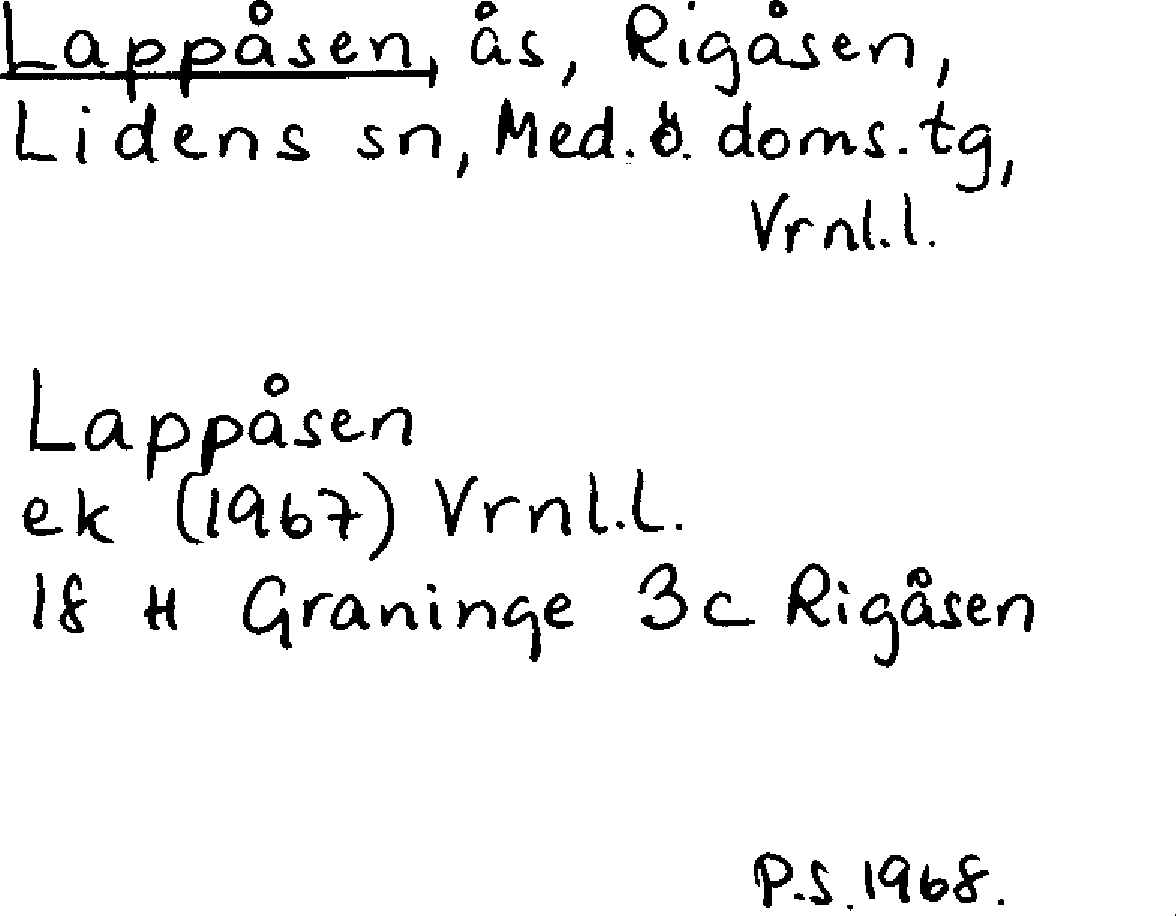 Lappåsen, ås, Rigåsen,
Lidens sn, Med. ö. doms. tg,
Vrnl.l.
Lappåsen
ek (1967) Vrnl.l.
18 H Graninge 3c Rigåsen
P.S. 1968.